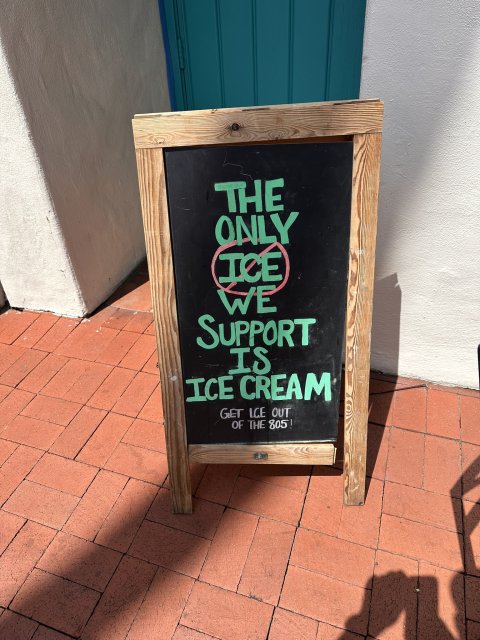 THE
ONLY
ICE
WE
SUPPORT
IS
ICE CREAM
GET ICE OUT
OF THE 805!